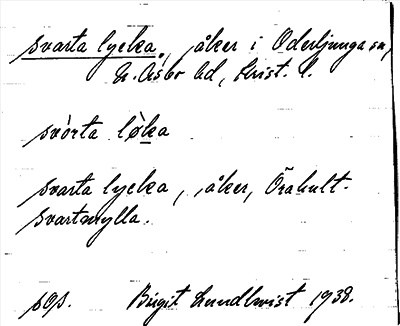 svarta lycka, åker i Oderljunga sn,
N. Åsbo hd, Krist. l.
svòrta lò̱ka
svarta lycka, åker, Örahult.
svartmylla.
søs. Birgit Lundkvist 1938.